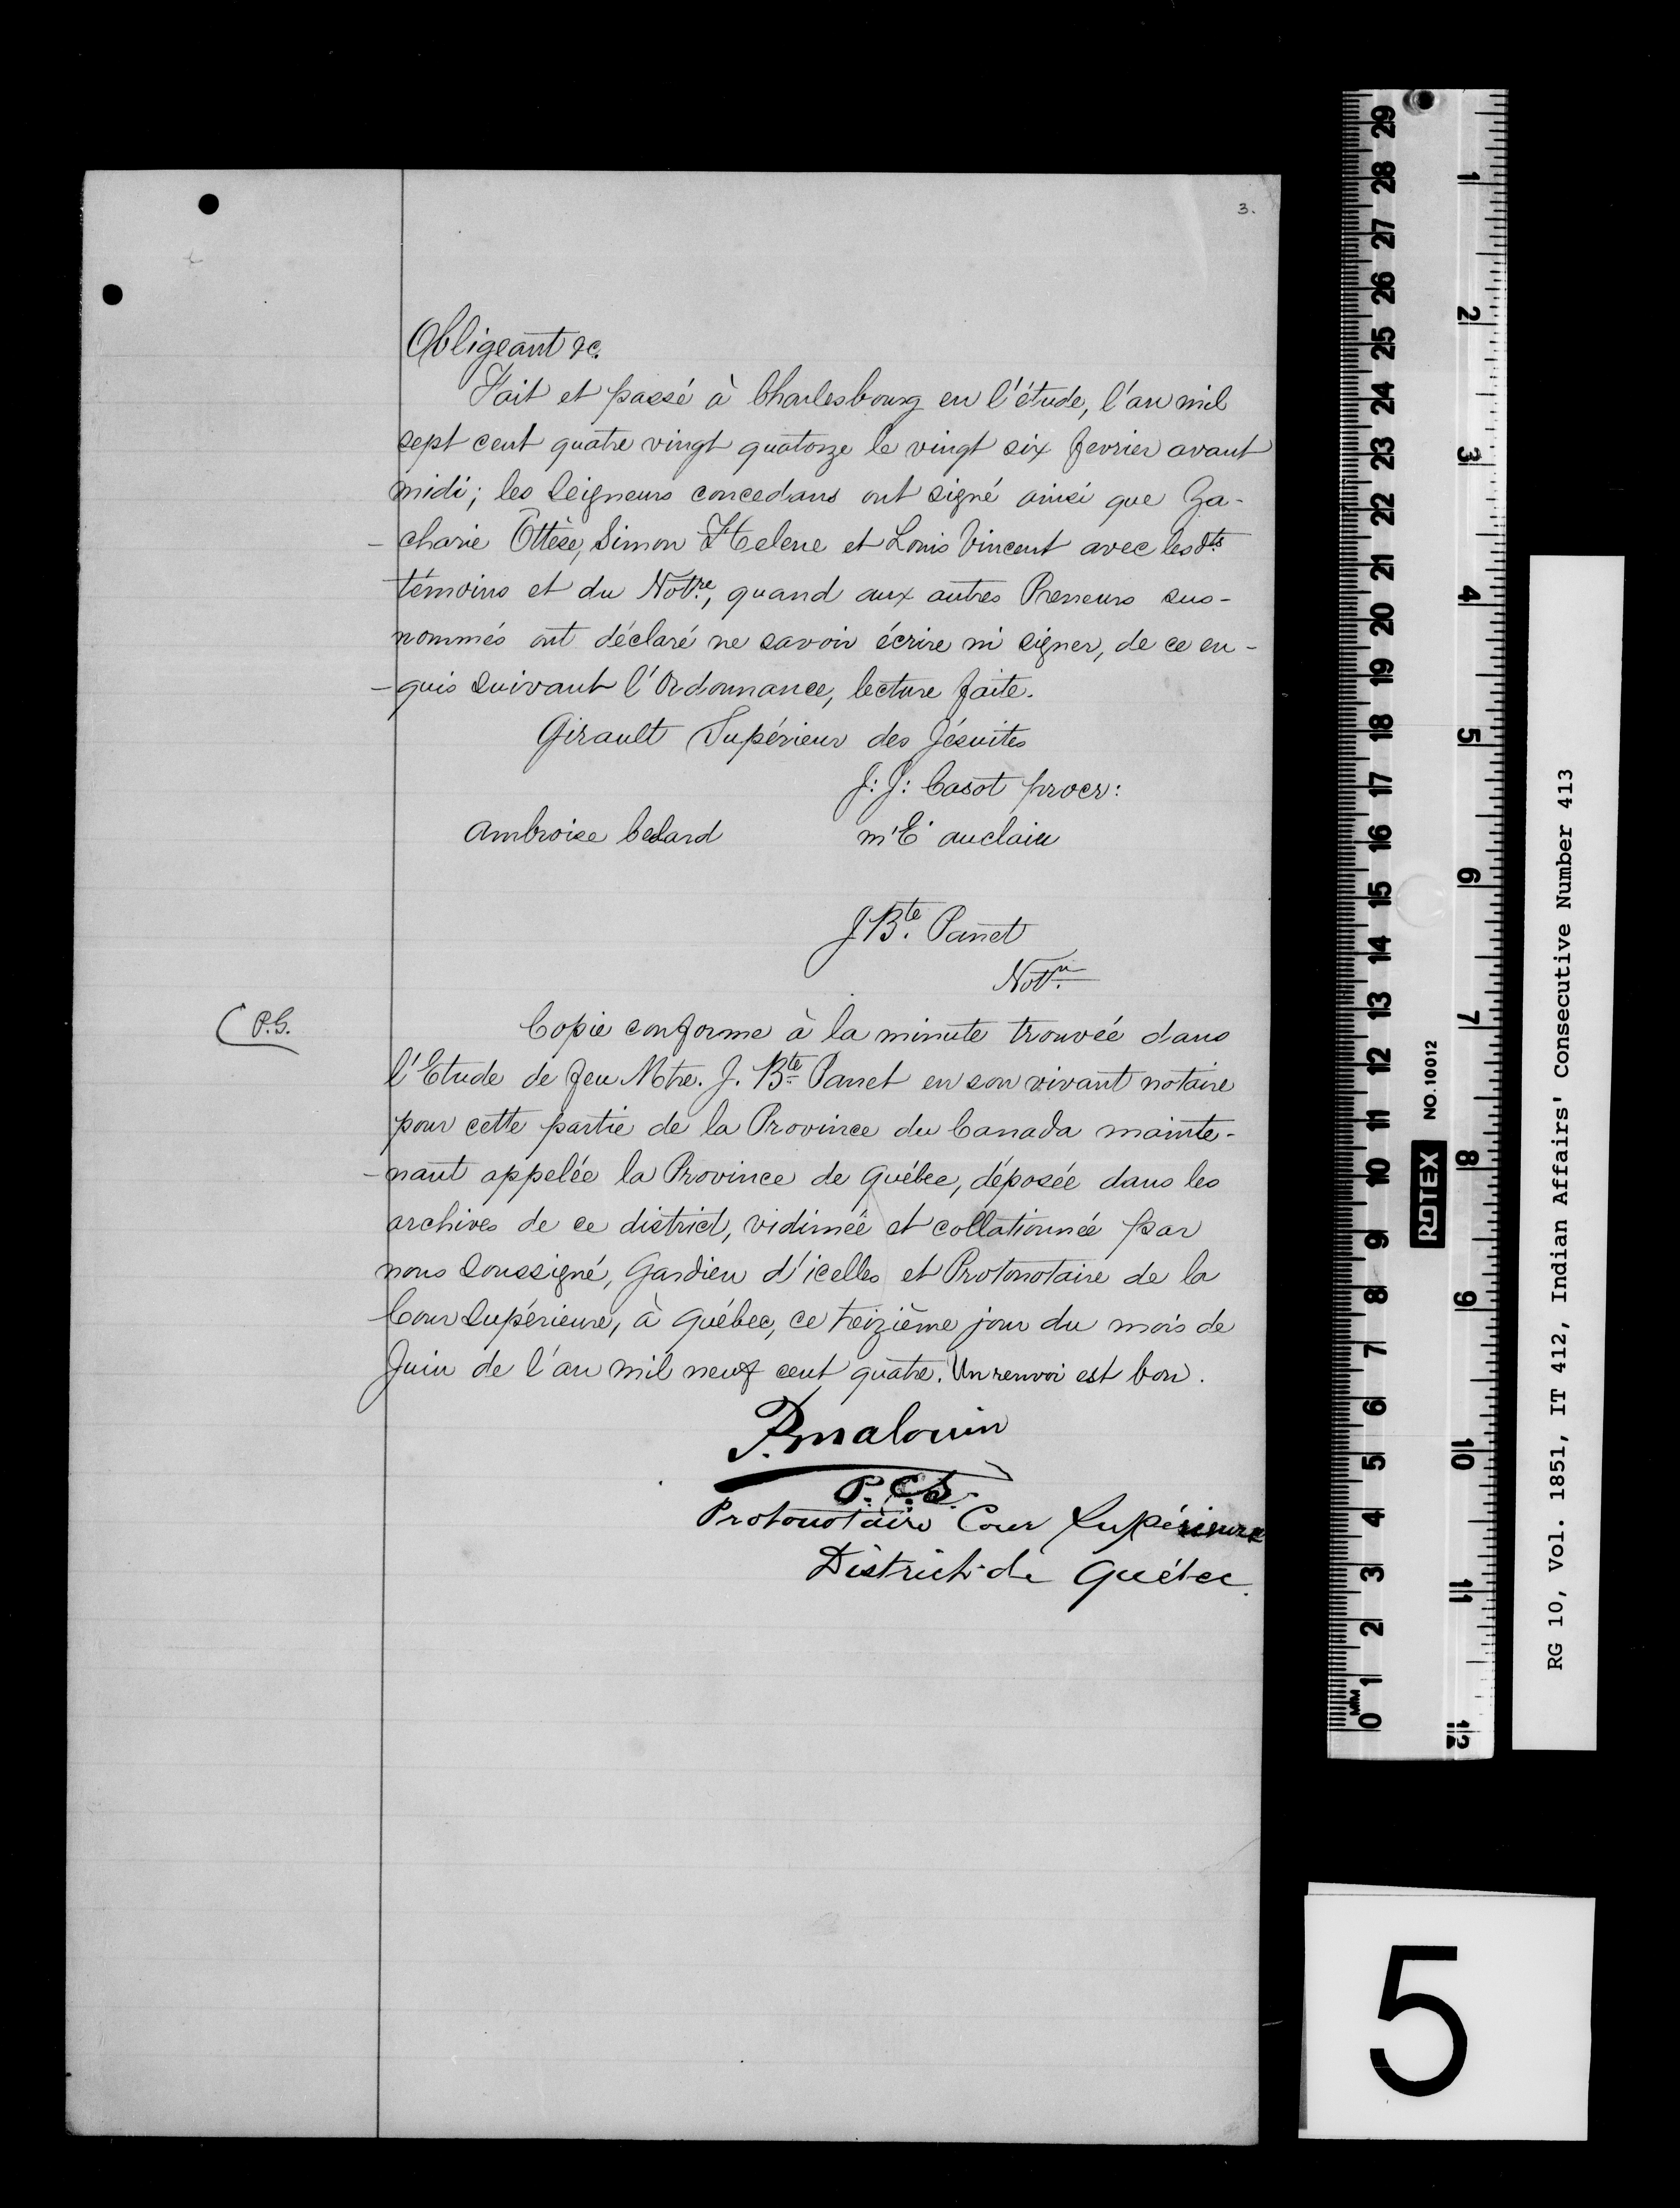 3.
Obligeant &c.
Fait et passé à Charlesbourg en l'étude, l'an mil
sept cent quatre vingt quatorze le vingt six fevrier avant
midi; les Seigneurs concedans ont signé ainsi que Za-
-charie Ôttèse, Simon Helene et Louis Vincent avec les dts
témoins et du Nottre, quand aux autres Preneurs sus-
nommés ont déclaré ne savoir écrire ni signer, de ce en-
-quis suivant l'Ordonnance, lecture faite.
Girault Supérieur des Jésuites
J: J: Casot procr:
Ambroise bedard
m'E' auclair
J Bte. Panet
Nottre
(P.G.
Copie conforme à la minute trouvée dans
l'Etude de feu Mtre. J. Bte. Panet en son vivant notaire
pour cette partie de la Province du Canada mainte-
-nant appelée la Province de Québec, déposée dans les
archives de ce district, vidimée et collationnée par
nous Soussigné, Gardien d'icelles et Protonotaire de la
Cour Supérieure, à Québec, ce treizième jour du mois de
Juin de l'an mil neuf cent quatre. Un renvoi est bon.
P. Malouin
P.C.S.
Protonotaire Cour Supérieure
District de Québec.
RG 10, Vol. 1851, IT 412, Indian Affairs' Consecutive Number 413
ROTEX NO. 10012
MM 0 1 2 3 4 5 6 7 8 9 10 11 12 13 14 15 16 17 18 19 20 21 22 23 24 25 26 27 28 29
1 2 3 4 5 6 7 8 9 10 11 12
5